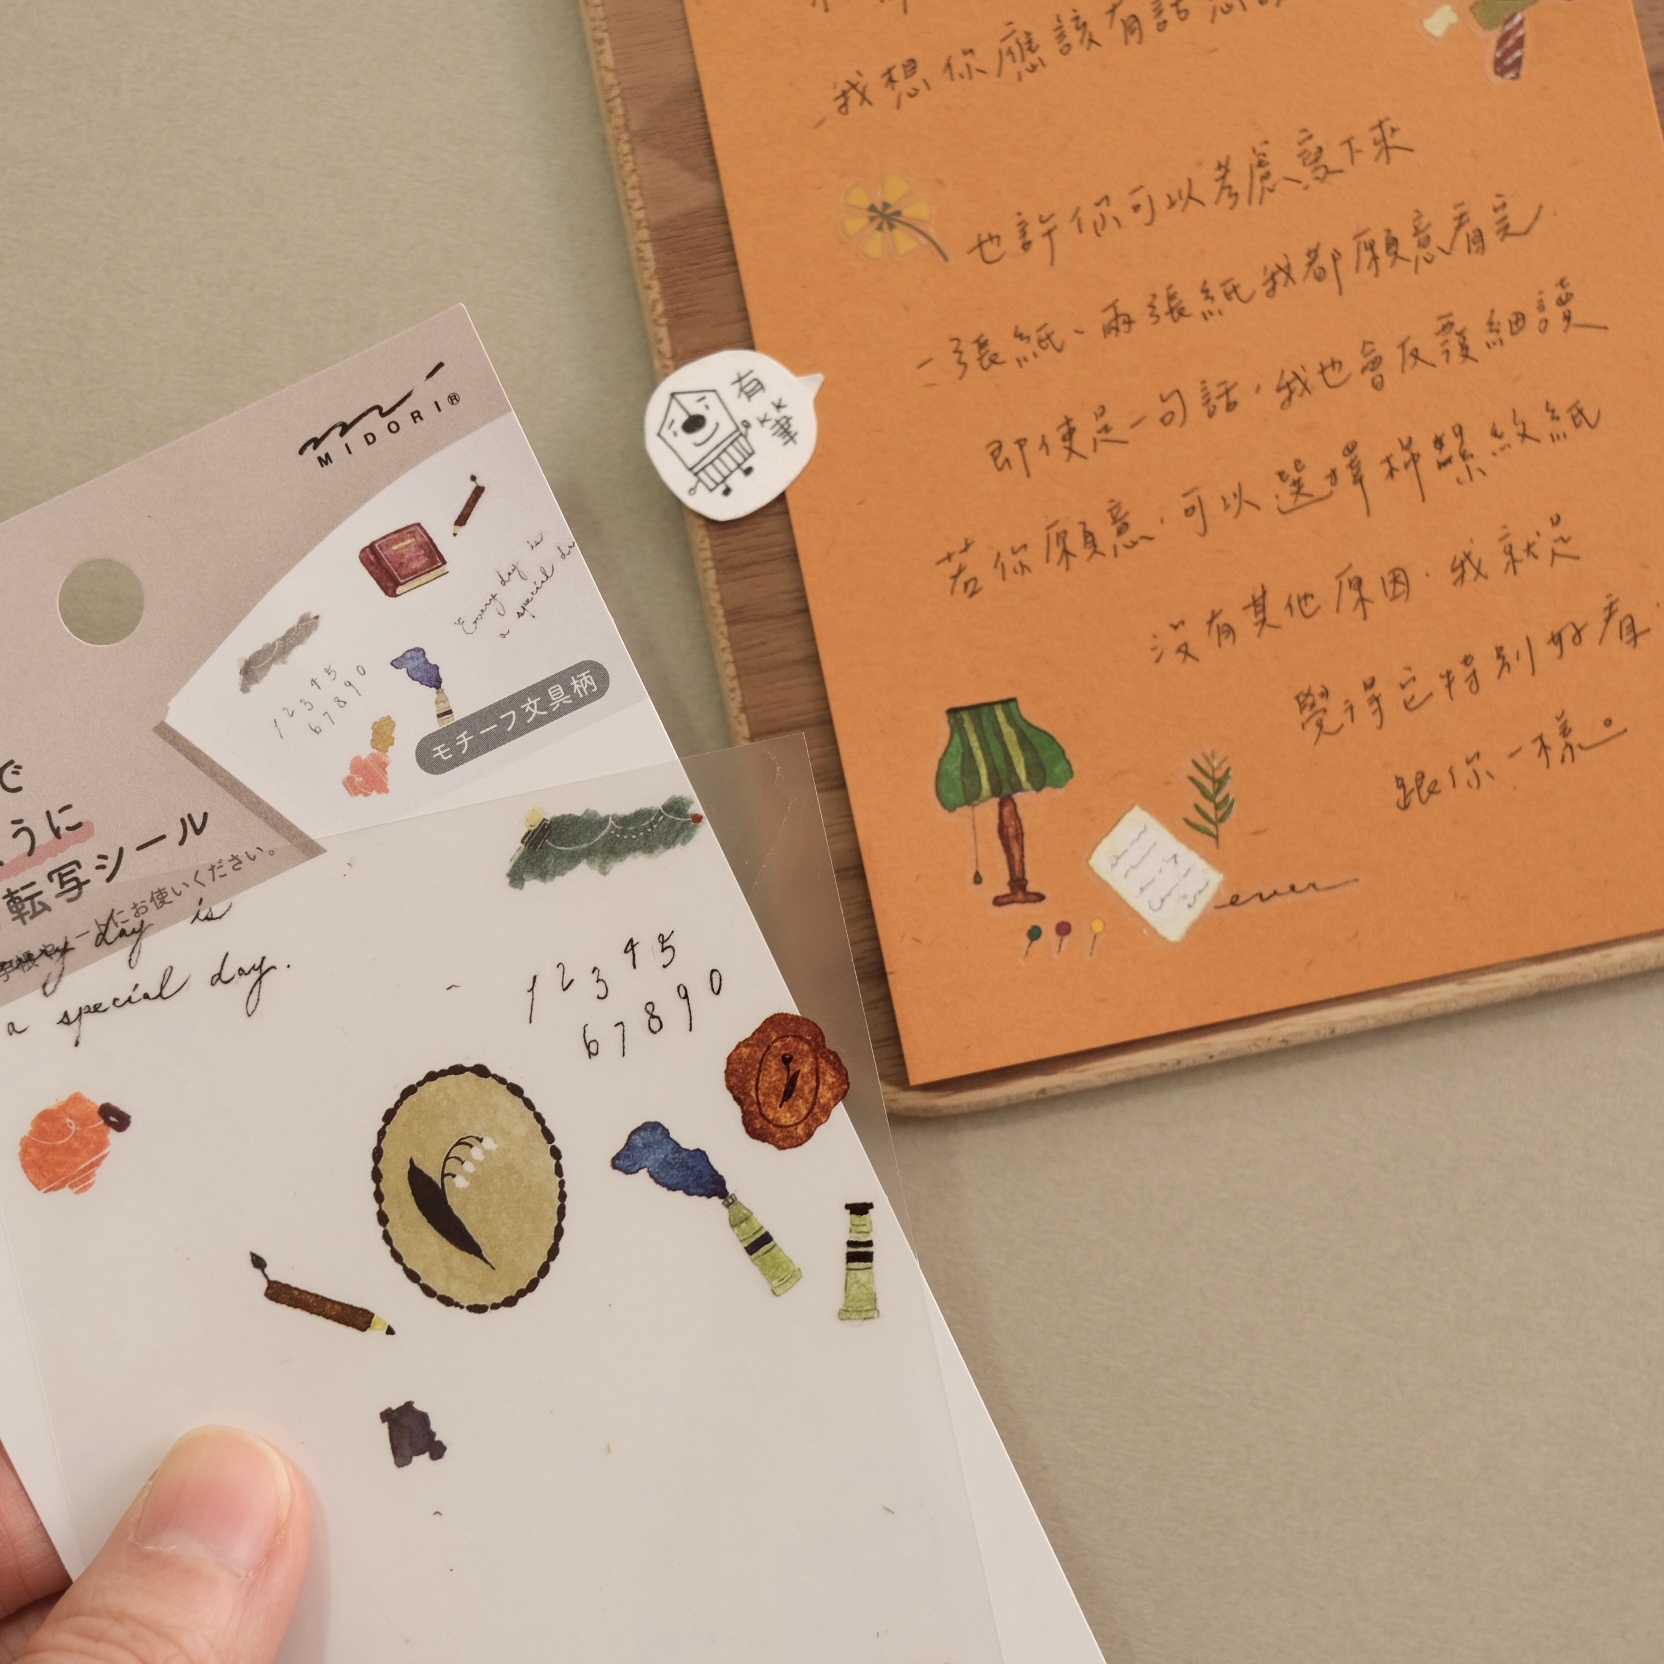 我想你應該有話想
也許你可以考慮寫下來
一張紙、兩張紙我都願意看完
即使是一句話,我也會反覆細讀
若你願意,可以選擇棉絮紋紙
沒有其他原因,我就是
覺得它特別好看,
跟你一樣。
ever
有
筆
MIDORI®
Every day is
a special da
1 2 3 4 5
6 7 8 9 0
モチーフ文具柄
で
ように
転写シール
にお使いください。
day is
a special day.
1 2 3 4 5
6 7 8 9 0